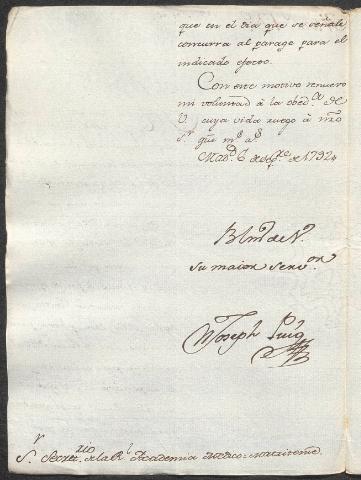 que en el dia que se señale
concurra al parage para el
indicado efecto.
Con este motivo renuevo
mi voluntad à la obed.ª de
V. cuya vida ruego à nrõ
S.r gũe m.s a.s
Mad.d 6 de de 1792
B l m de V.
su maior serv.or
Joseph Puig
S.r Secret.rio de la R.l Academia Medico-Matritense.